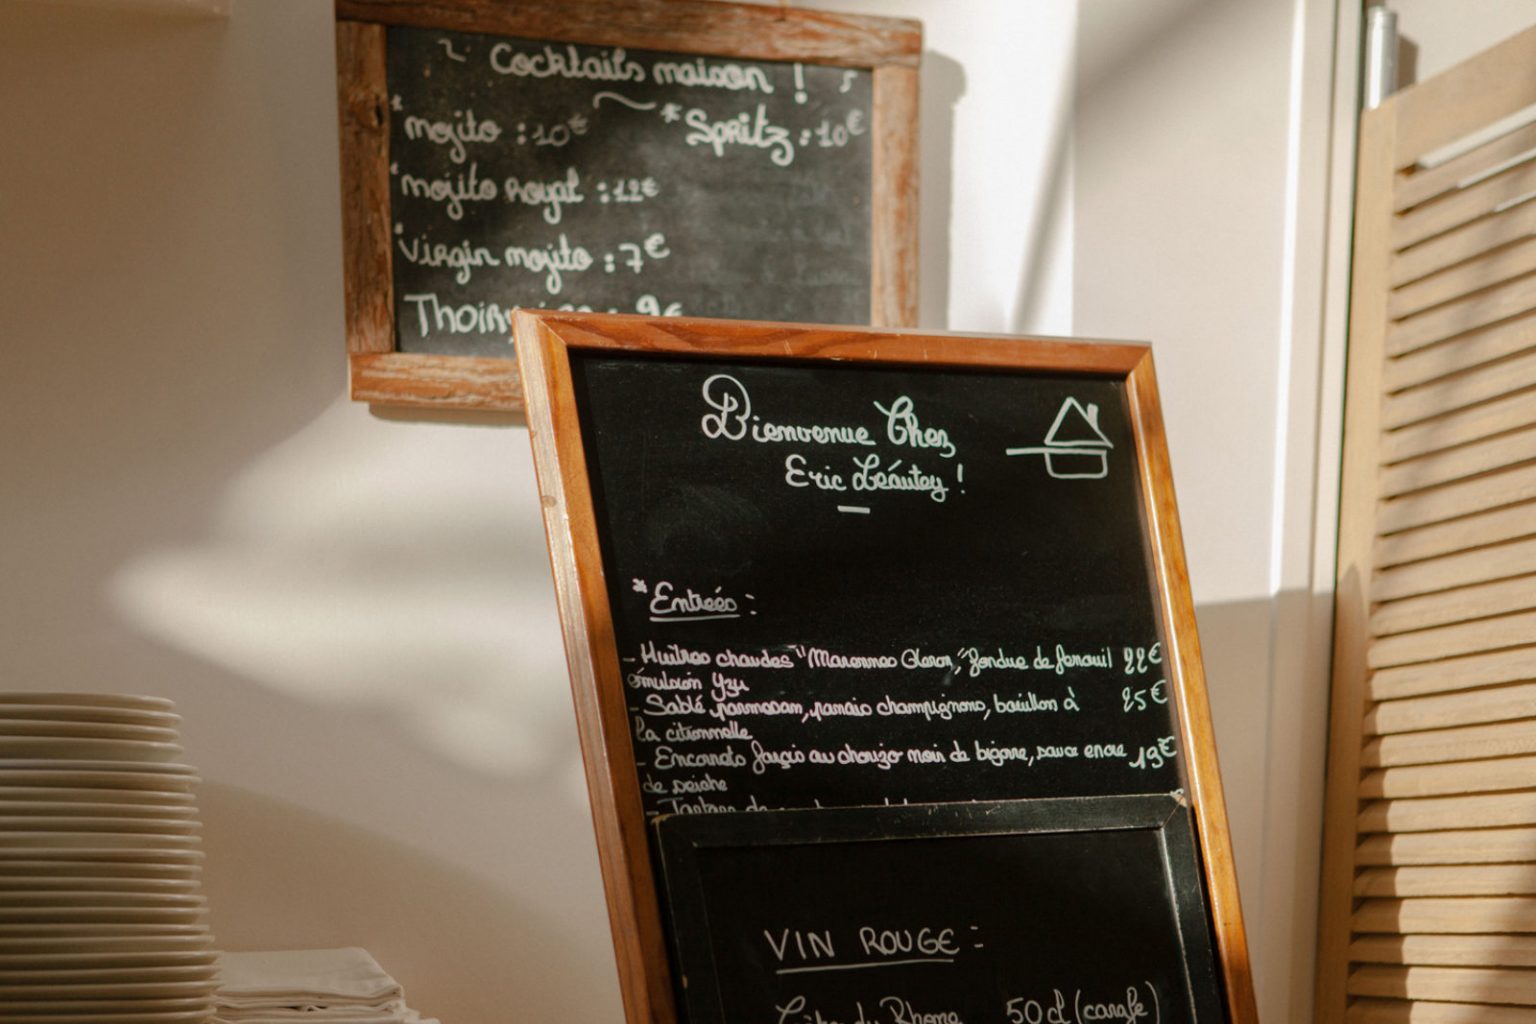 Cocktails maison !
* mojito : 10€ * Spritz : 10€
* mojito Royal : 12€
* Virgin mojito : 7€
9€
Bienvenue Chez
Eric Léautey !
* Entrées :
- Huîtres chaudes "Marennes Oleron," fondue de fenouil 22€
émulsion yzu
- Sablé parmesan, panais champignons, bouillon à 25€
la citronnelle
- Encornets farçis au chorizo noir de bigorre, sauce encre 19€
de seiche
- Tartare de
VIN ROUGE :
Côte du Rhône 50cl (carafe)